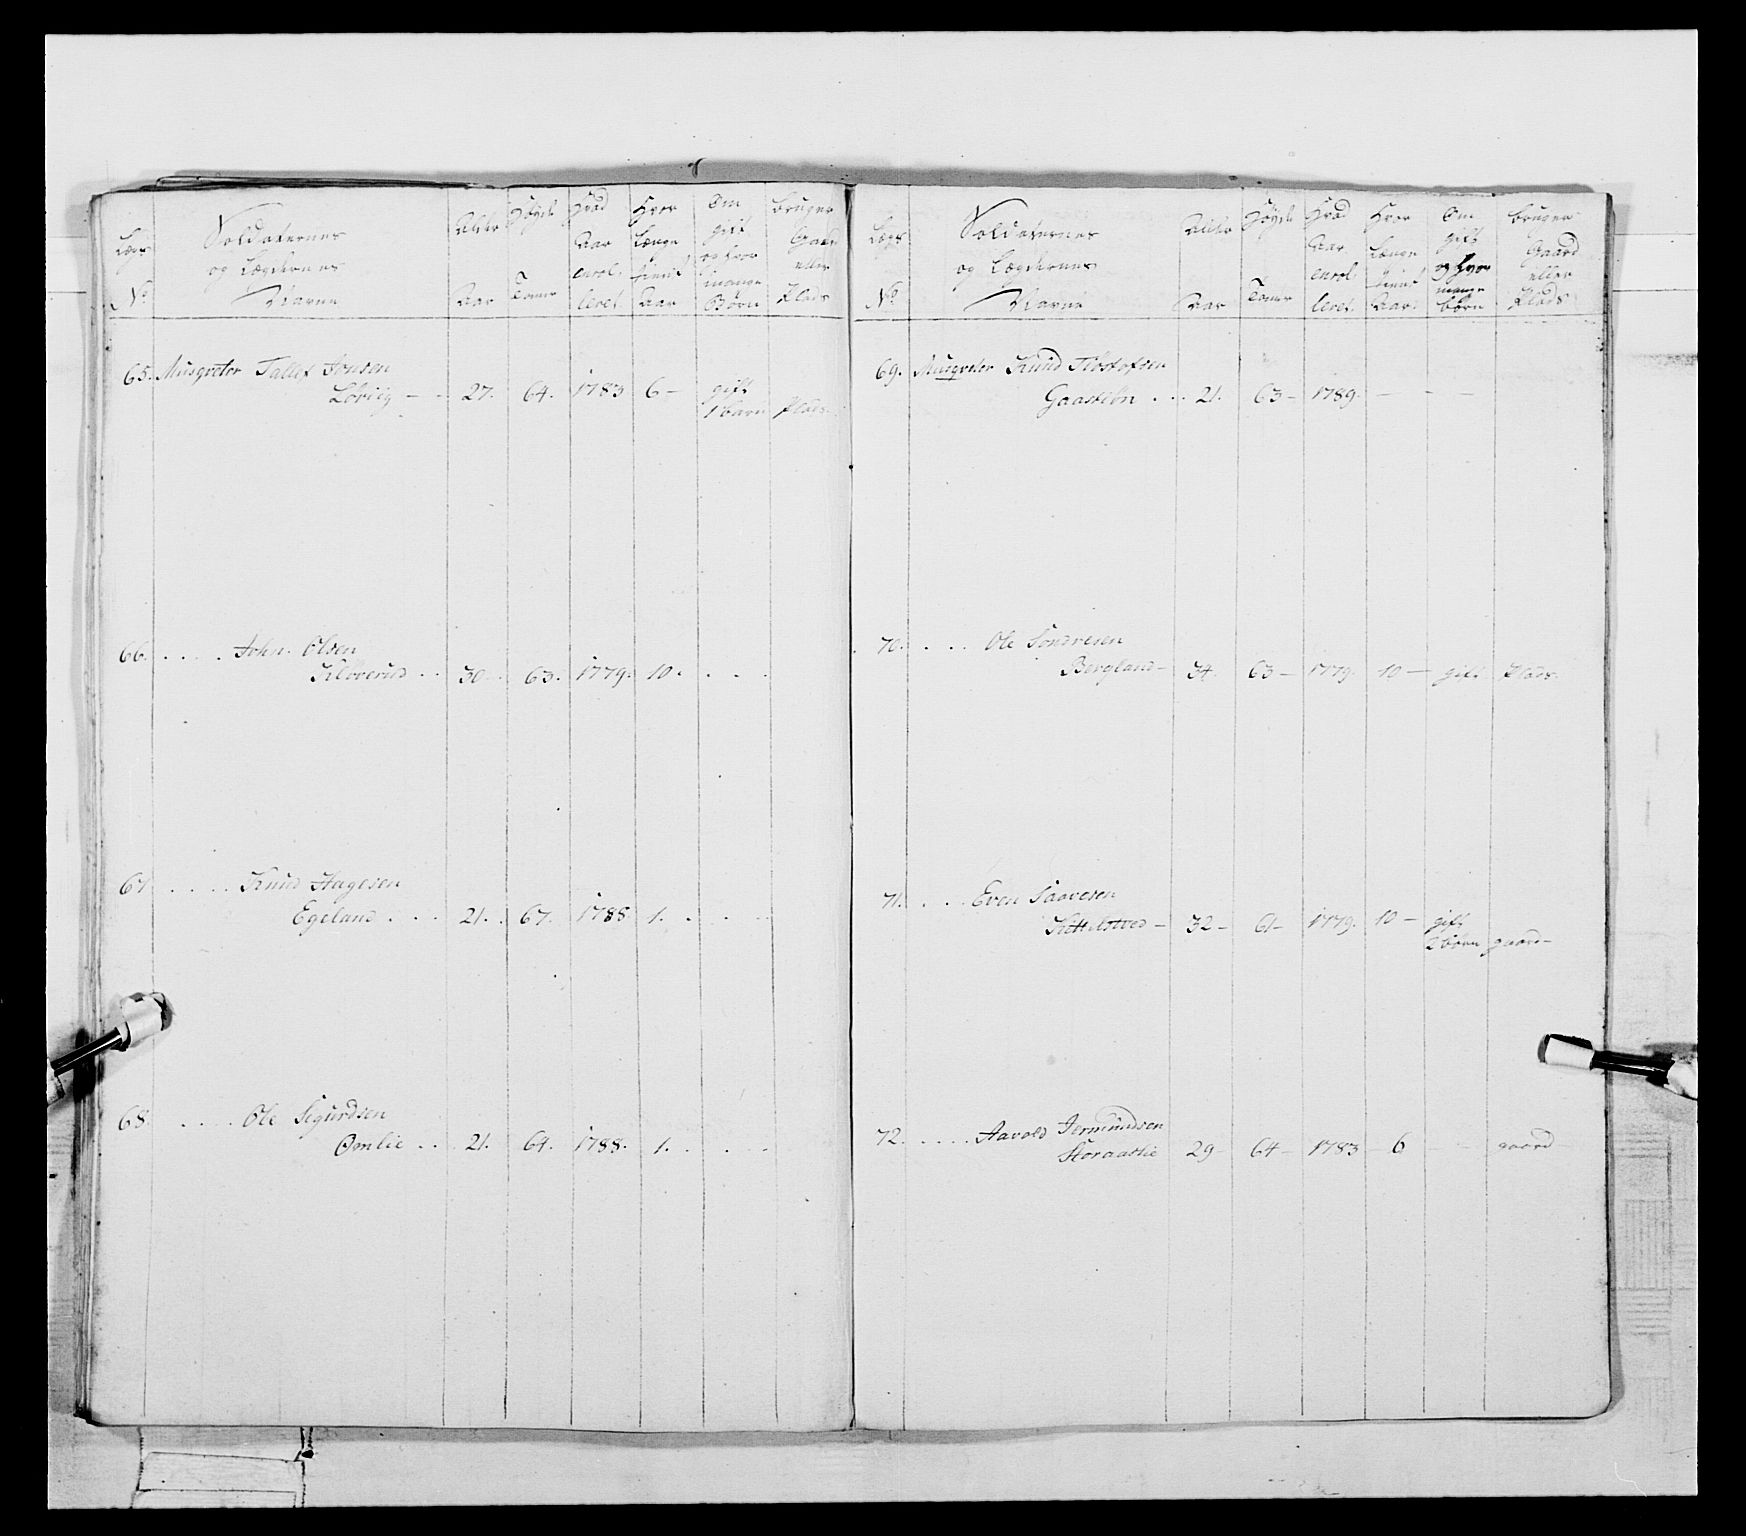 Lægs No
Soldaternes og Lægdernes Navne
Alder Aar
Høyde Tomer
Hvad Aar enrol- leret
Hvor Længe tient Aar
Om gift og hvor mange Børn
bruger Gaard eller Plads
65. Musqveter Tallef Jonsen
Lövdig - - 27. 64. 1783 6 - gift
1 barn Plads.
66. . . . . John Olsen
Klöverud . . 30 63. 1779. 10. . . .
67 . . . . Knud Aagesen
Egeland . . . 21. . 67. 1788. 1. . . .
68 . . . . Ole Sigurdsen
Omlie . . 21. 64. 1788. 1. . . .
Lægs No.
Soldaternes og Lægdernes Navne
Alder Aar
Høyde Tomer
Hvad Aar enrol- leret.
Hvor Længe tient Aar.
Om gift og hvor mange börn
bruger Gaard eller Plads
69. Musqveter Knud
. . . 21. 63 - 1789. - - -
70. . . . Ole Sondresen
Bergland - 34. 63 - 1779. 10 - gift Plads.
71. . . . Even Saavesen
Kittelstved - 32 - 61 - 1779. 10 - gift
2 börn gaard -
72. . . . . Aavold Jermundsen
29 - 64 - 1783 - 6 - - gaard